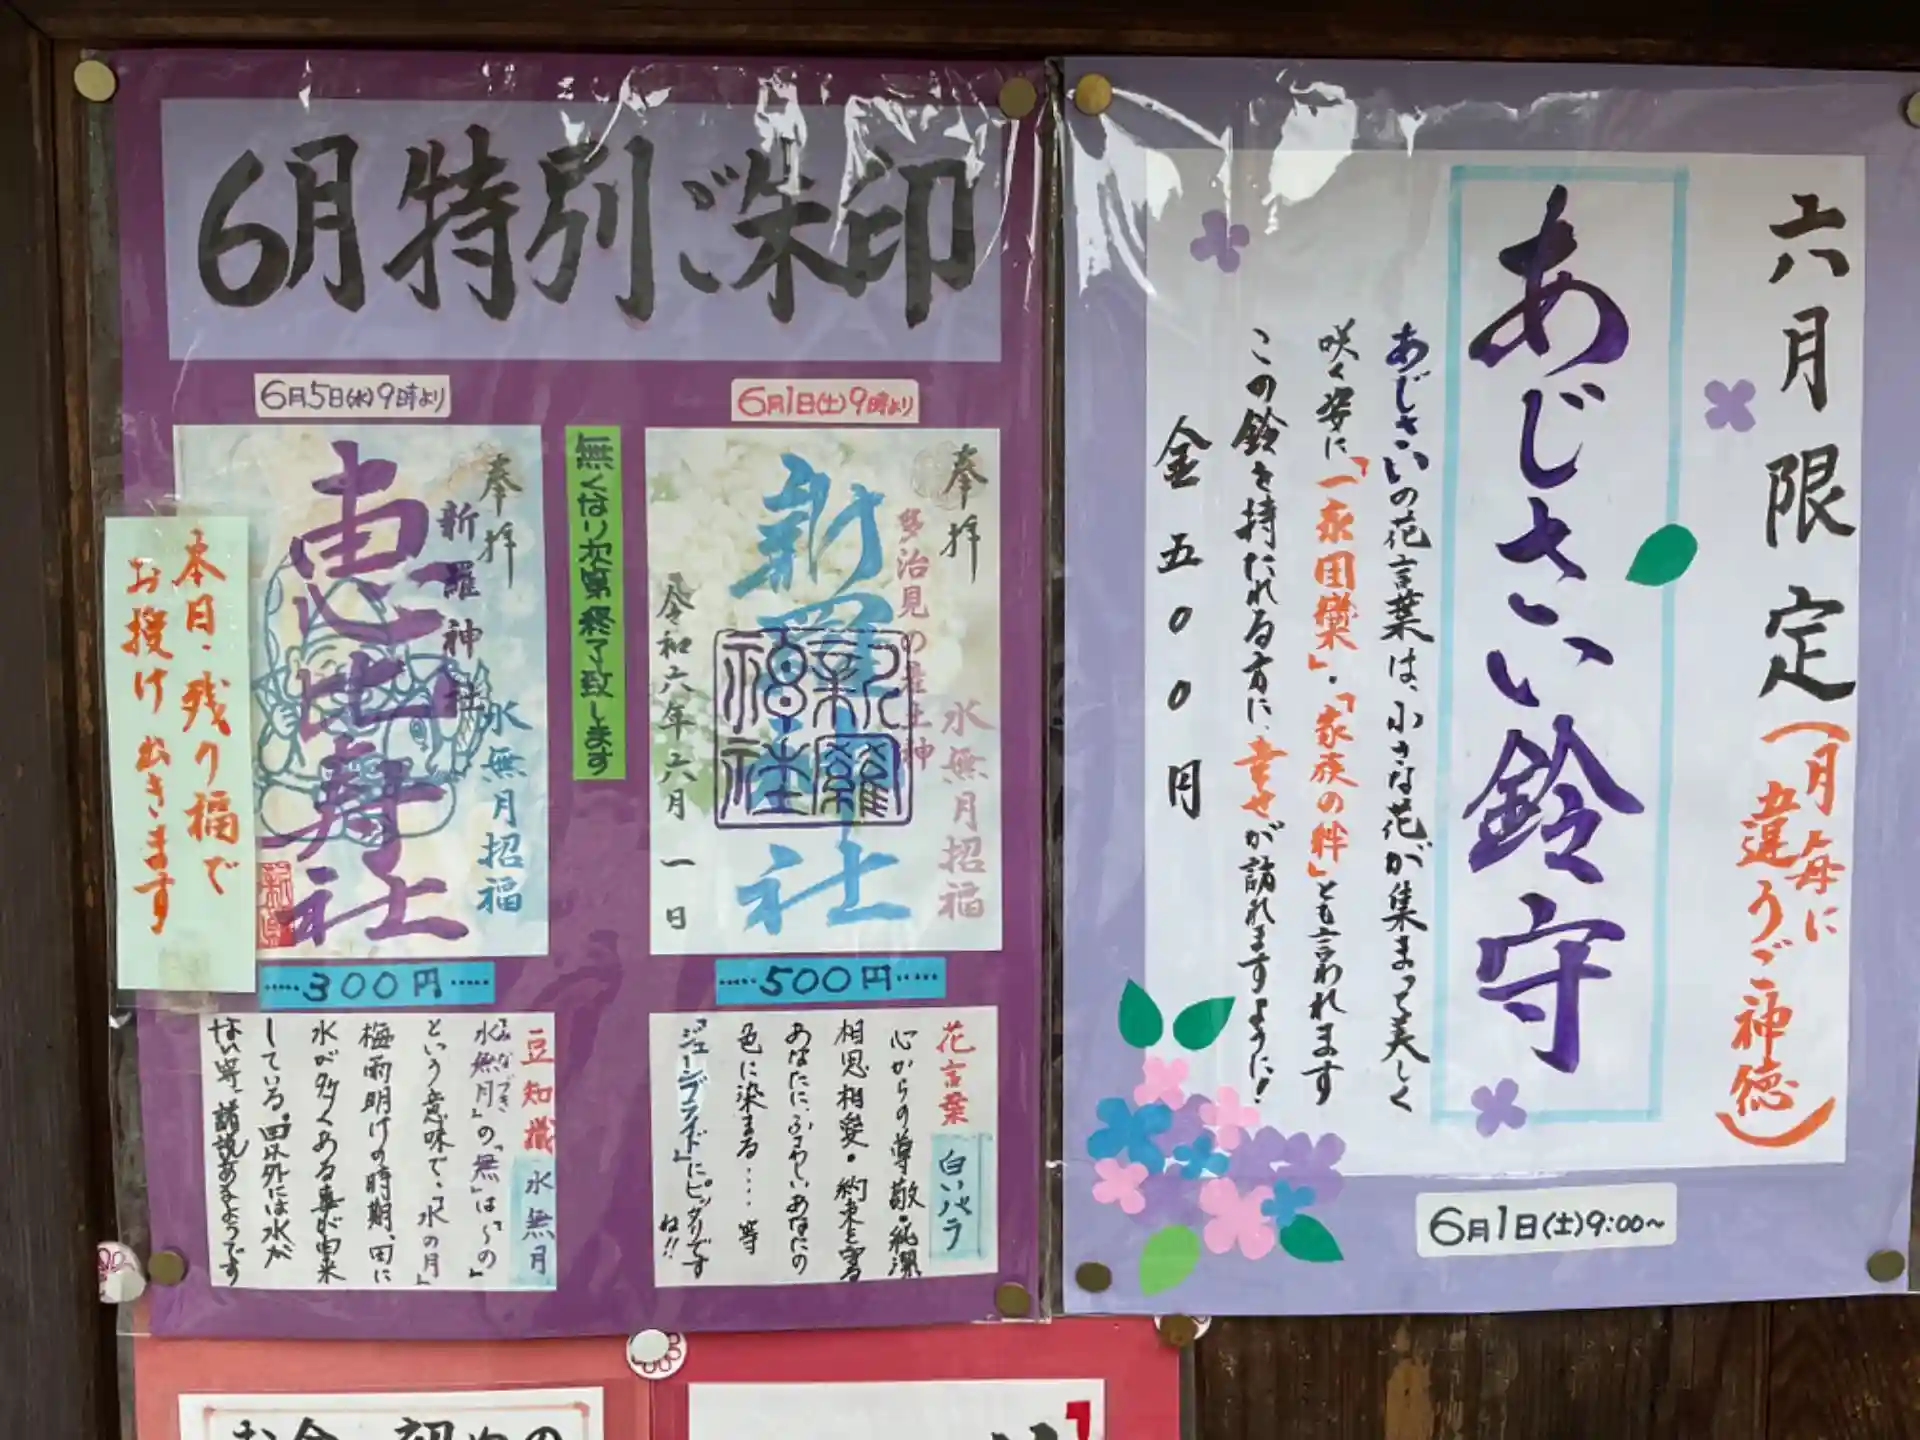 6月特別ご朱印
6月5日(水)9時より
6月1日(土)9時より
奉拝
新羅神社
恵比寿社
水無月招福
無くなり次第終了致します
奉拝
多治見の産土神
新羅神社
新羅福社
水無月招福
令和六年六月一日
本日、残り福で
お授けできます
300円
500円
豆知識
水無月
みなづき
水無月」の「無」は「の」
という意味で、「水の月」
梅雨明けの時期、田に
水が多くある事が由来
している。田以外には水が
ない等、諸説あるようです
花言葉
白いバラ
心からの尊敬・純潔
相思相愛・約束を守る
あなたに、ふさわしいあなたの
色に染まる・・・・等
「ジューンブライド」にピッタリです
ね!!
六月限定(月毎に
違うご神徳)
あじさい鈴守
あじさいの花言葉は、小さな花が集まって美しく
咲く姿に「一家団欒」・「家族の絆」とも言われます
この鈴を持たれる方に、幸せが訪れますように!
金五〇〇円
6月1日(土)9:00~